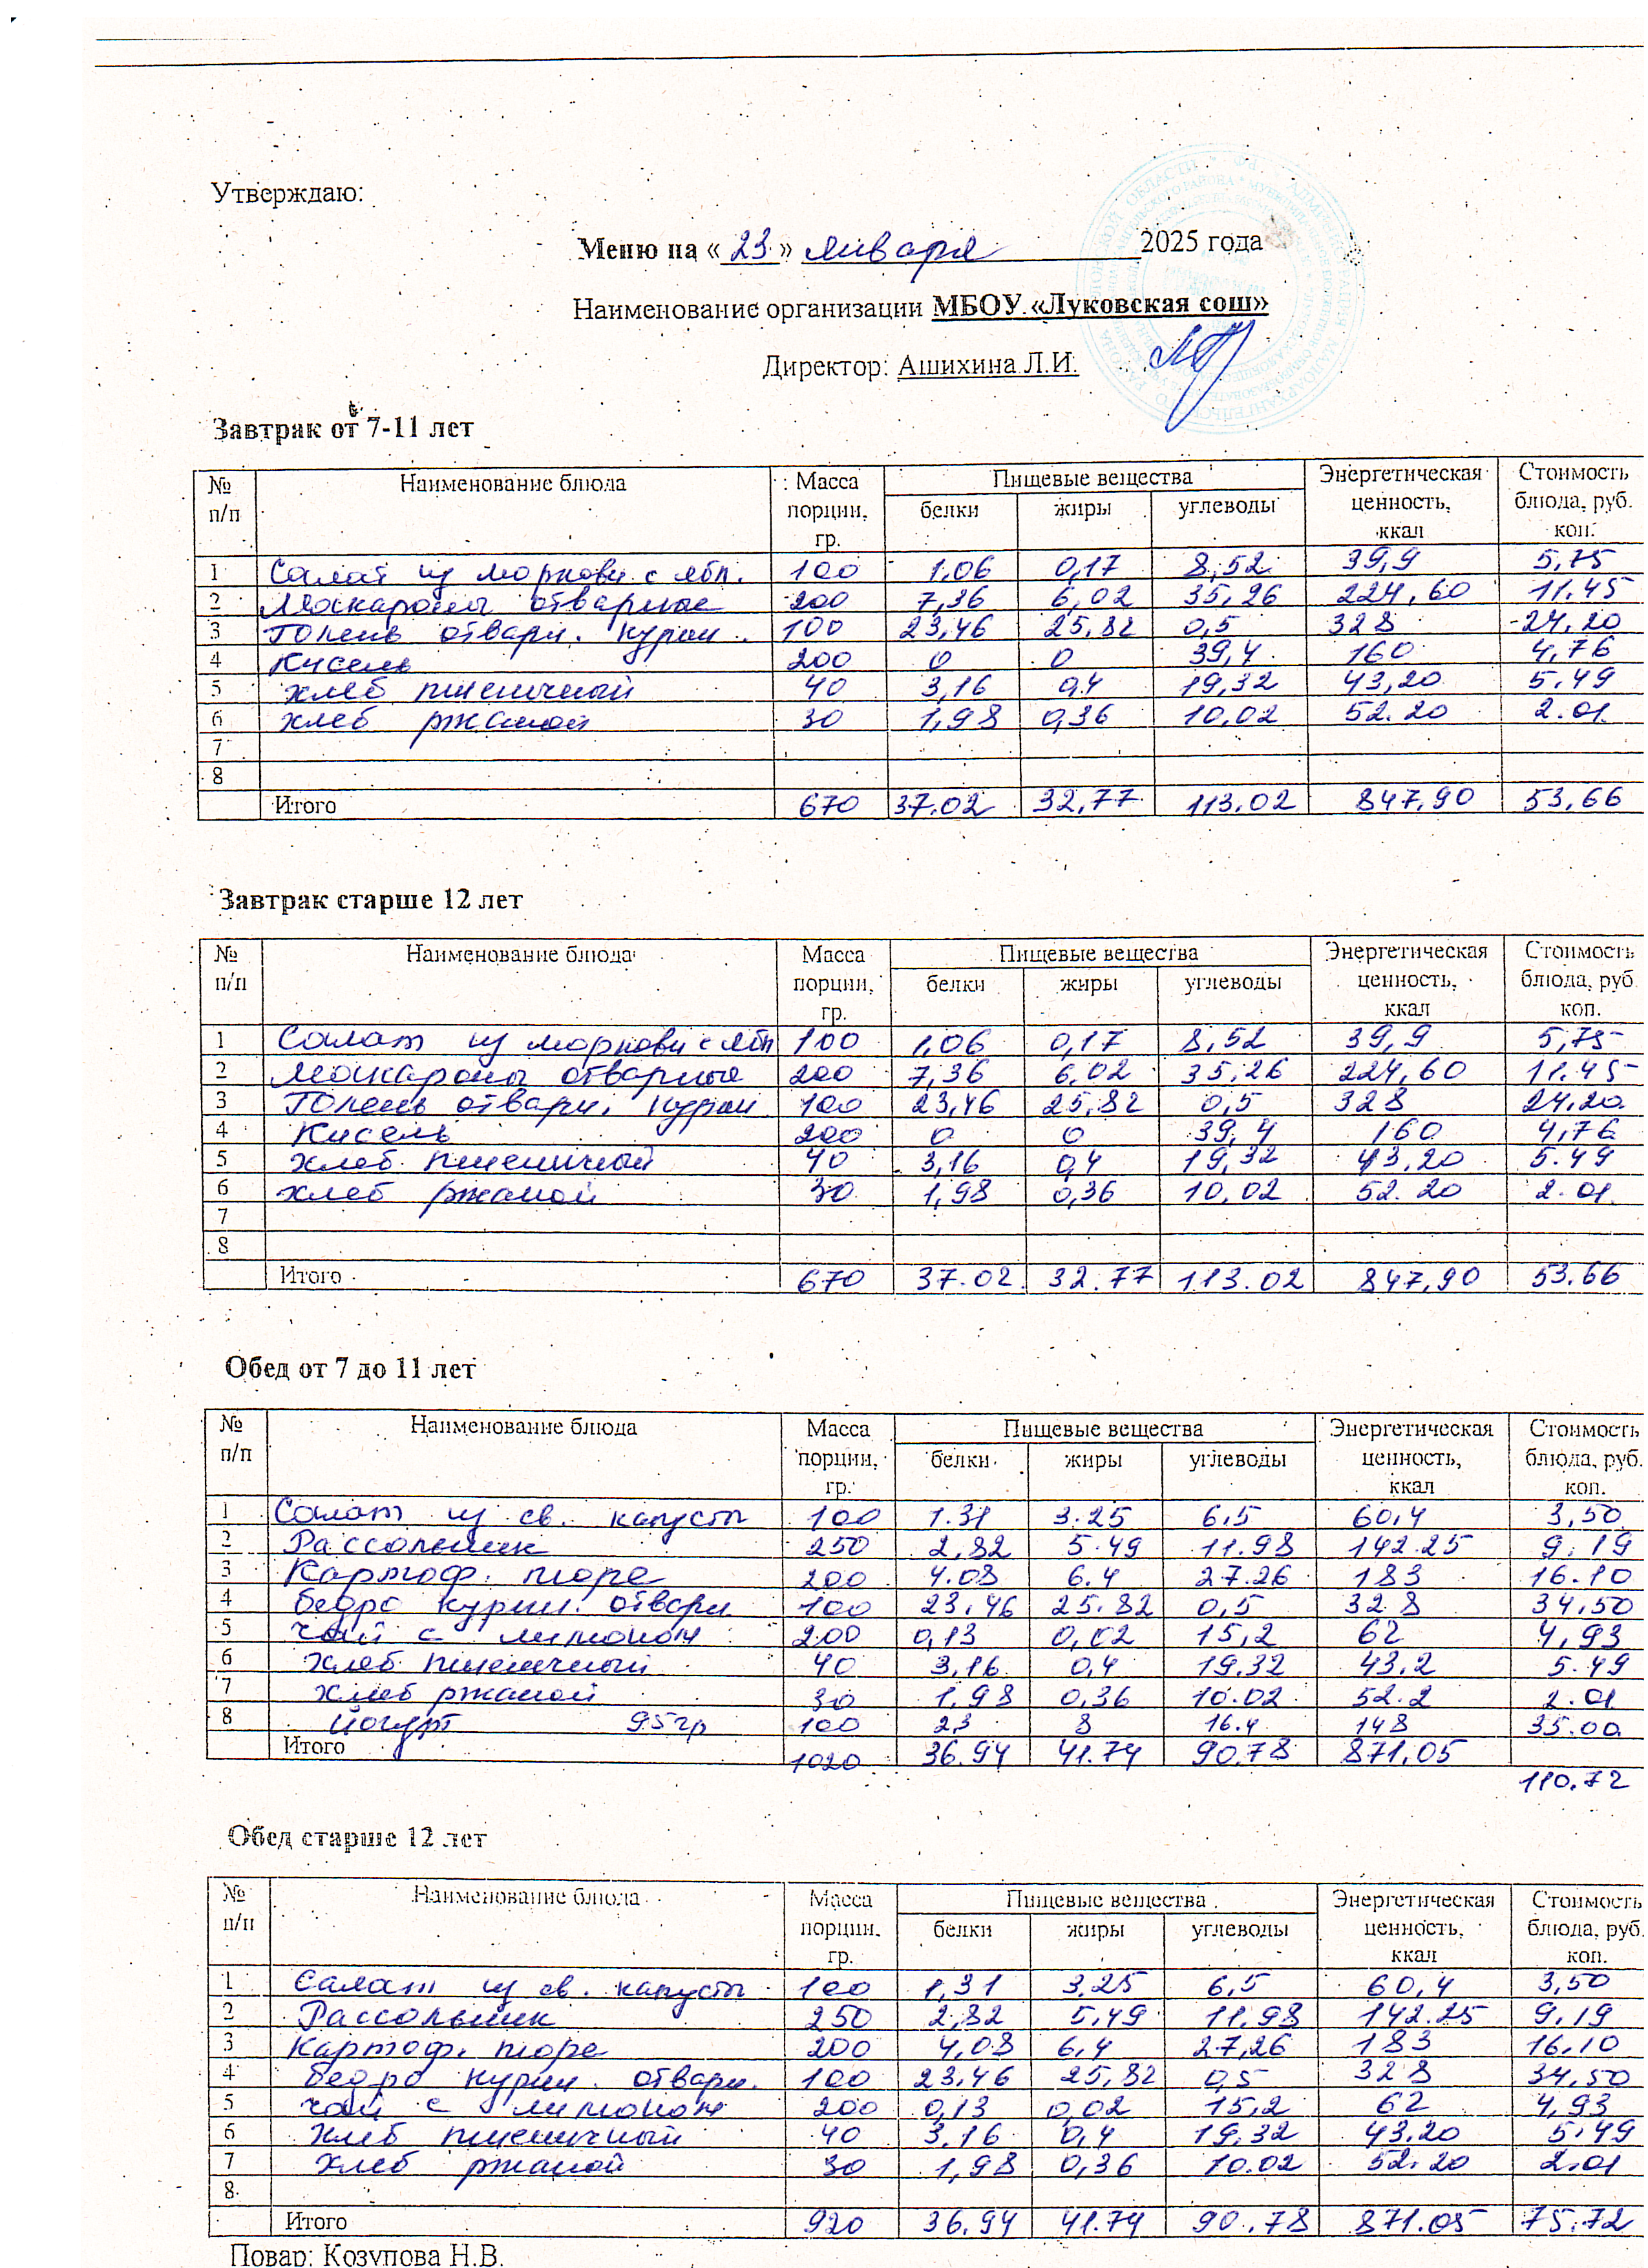 Утверждаю:
Меню на « 23 » января 2025 года
Наименование организации МБОУ «Луковская сош»
Директор: Ашихина Л.И.
Завтрак от 7-11 лет
№ п/п Наименование блюда Масса порции, гр. Пищевые вещества Энергетическая ценность, ккал Стоимость блюда, руб. коп.
белки жиры углеводы
1 Салат из моркови с ябл. 100 1,06 0,17 8,52 39,9 5,75
2 Макароны отварные 200 7,36 6,02 35,26 224,60 11.45
3 Голень отварн. курин. 100 23,46 25,82 0,5 328 24,20
4 Кисель 200 0 0 39,4 160 4,76
5 хлеб пшеничный 40 3,16 0,4 19,32 43,20 5.49
6 хлеб ржаной 30 1,98 0,36 10,02 52.20 2.01
7
8
Итого 670 37.02 32,77 113.02 847,90 53,66
Завтрак старше 12 лет
№ п/п Наименование блюда Масса порции, гр. Пищевые вещества Энергетическая ценность, ккал Стоимость блюда, руб. коп.
белки жиры углеводы
1 Салат из моркови с ябл 100 1,06 0,17 8,52 39,9 5,75
2 Макароны отварные 200 7,36 6,02 35,26 224,60 11.45
3 Голень отварн. курин 100 23,46 25,82 0,5 328 24,20
4 Кисель 200 0 0 39,4 160 4,76
5 хлеб пшеничный 40 3,16 0,4 19,32 43,20 5.49
6 хлеб ржаной 30 1,98 0,36 10,02 52.20 2.01
7
8
Итого 670 37.02 32.77 113.02 847,90 53.66
Обед от 7 до 11 лет
№ п/п Наименование блюда Масса порции, гр. Пищевые вещества Энергетическая ценность, ккал Стоимость блюда, руб. коп.
белки жиры углеводы
1 Салат из св. капусты 100 1.31 3.25 6,5 60,4 3,50
2 Рассольник 250 2,82 5.49 11.98 142.25 9.19
3 Картоф. пюре 200 4.08 6.4 27.26 183 16.10
4 бедро курин. отварн 100 23,46 25,82 0,5 328 34,50
5 чай с лимоном 200 0,13 0,02 15,2 62 4,93
6 хлеб пшеничный 40 3,16 0,4 19.32 43,2 5.49
7 хлеб ржаной 30 1,98 0,36 10.02 52.2 2.01
8 йогурт 95гр 100 23 8 16.4 148 35.00
Итого 1020 36.94 41.74 90.78 871,05
110.72
Обед старше 12 лет
№ п/п Наименование блюда Масса порции, гр. Пищевые вещества Энергетическая ценность, ккал Стоимость блюда, руб. коп.
белки жиры углеводы
1 Салат из св. капусты 100 1,31 3,25 6,5 60,4 3,50
2 Рассольник 250 2,82 5,49 11,98 142.25 9,19
3 Картоф. пюре 200 4,08 6,4 27,26 183 16,10
4 бедро курин. отварн. 100 23,46 25,82 0,5 328 34,50
5 чай с лимоном 200 0,13 0,02 15,2 62 4,93
6 хлеб пшеничный 40 3,16 0,4 19,32 43,20 5,49
7 хлеб ржаной 30 1,98 0,36 10.02 52.20 2.01
8
Итого 920 36,94 41.74 90.78 871.05 75.72
Повар: Козупова Н.В.